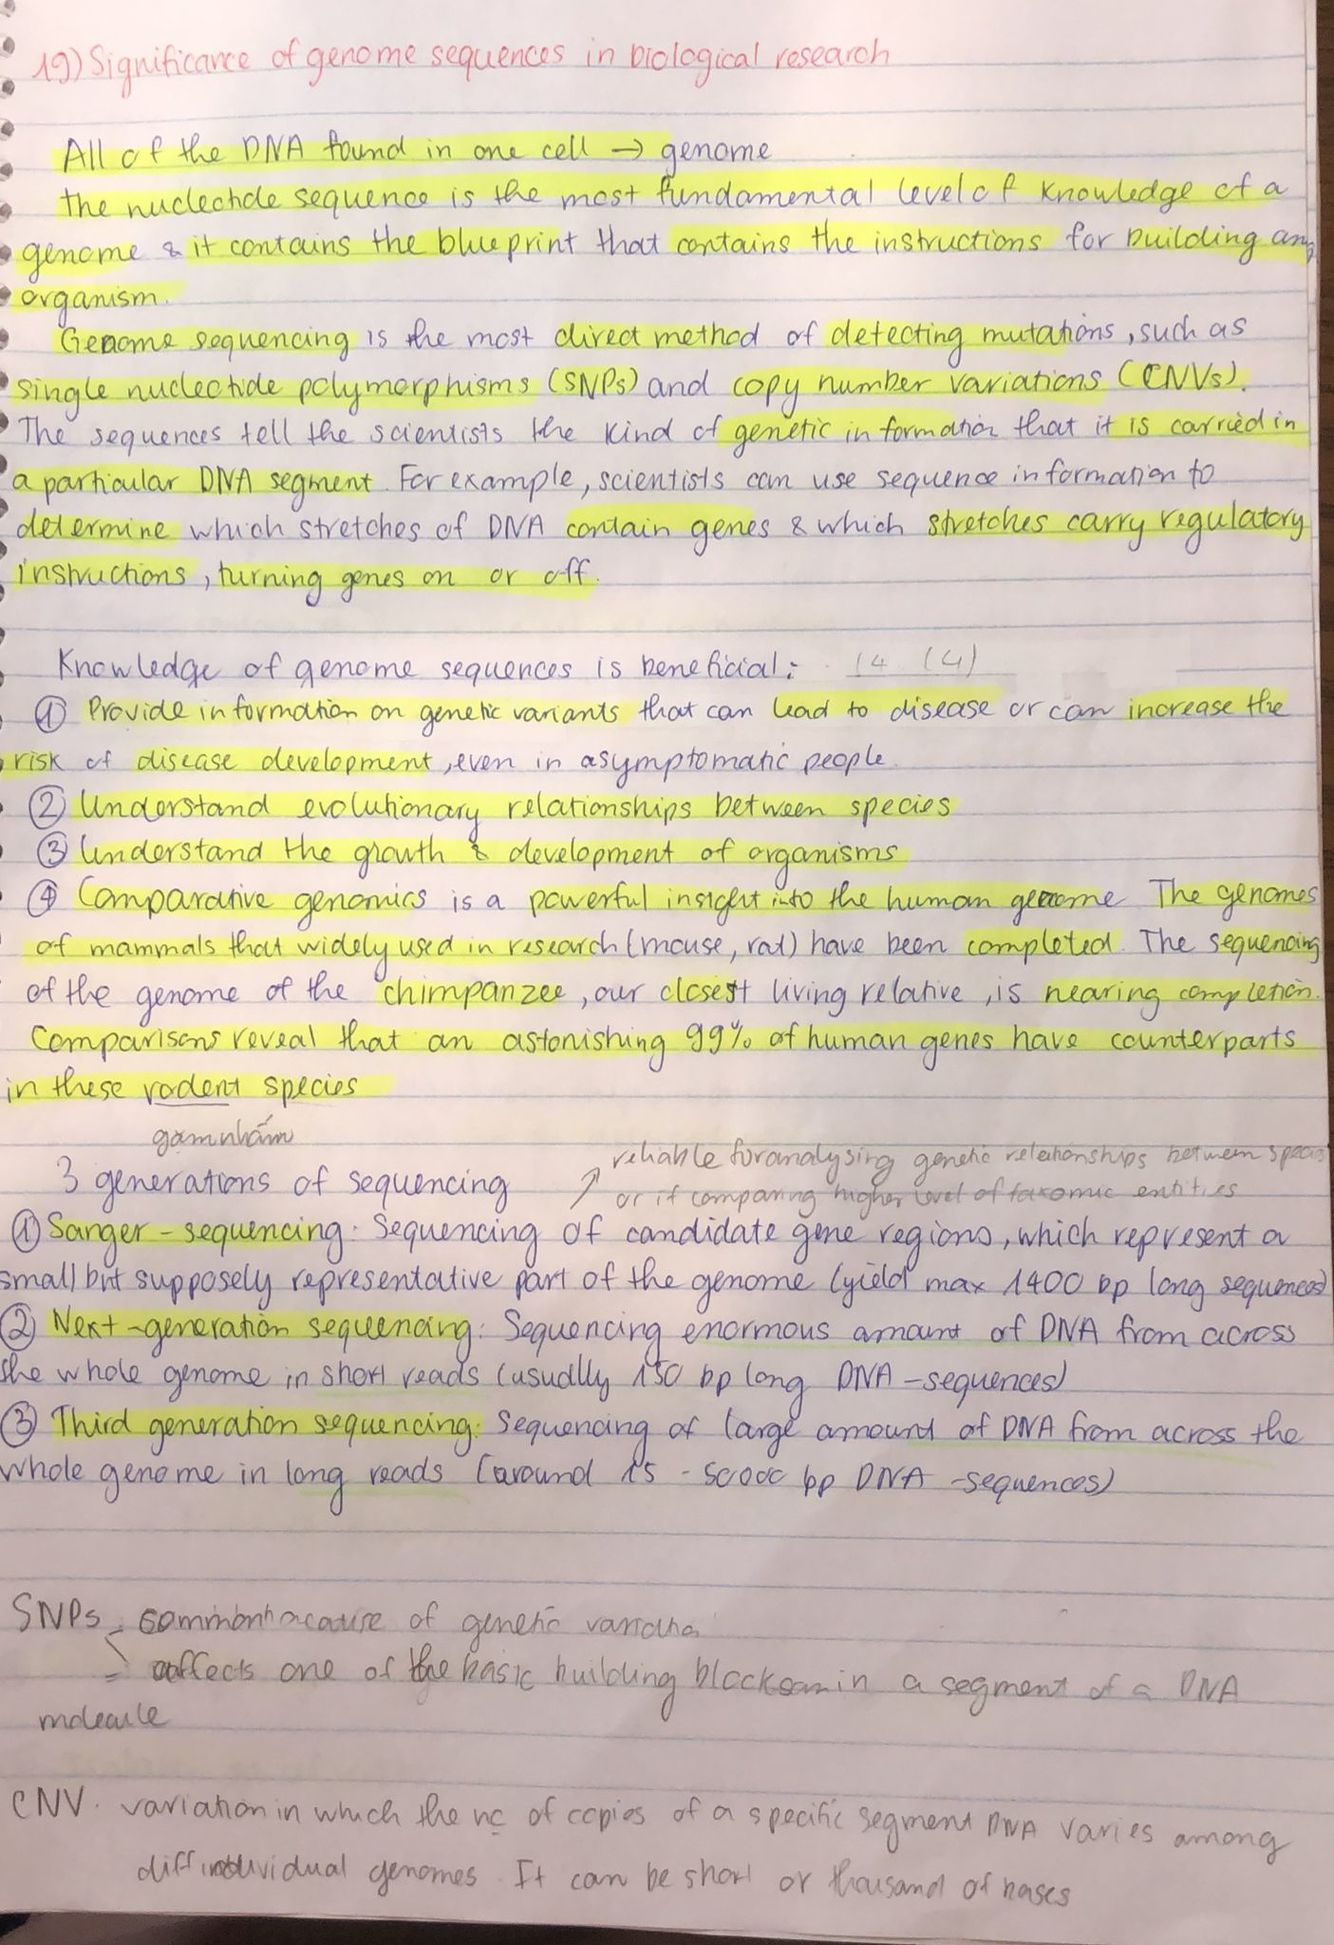 19) Significance of genome sequences in biological research
All of the DNA found in one cell → genome
The nucleotide sequence is the most fundamental level of knowledge of a
genome & it contains the blueprint that contains the instructions for building any
organism.
Genome sequencing is the most direct method of detecting mutations, such as
single nucleotide polymorphisms (SNPs) and copy number variations (CNVs).
The sequences tell the scientists the kind of genetic information that it is carried in
a particular DNA segment. For example, scientists can use sequence information to
determine which stretches of DNA contain genes & which stretches carry regulatory
instructions, turning genes on or off.
Knowledge of genome sequences is beneficial: 14 (4)
① Provide information on genetic variants that can lead to disease or can increase the
risk of disease development, even in asymptomatic people.
② Understand evolutionary relationships between species
③ Understand the growth & development of organisms
④ Comparative genomics is a powerful insight into the human genome. The genomes
of mammals that widely used in research (mouse, rat) have been completed. The sequencing
of the genome of the chimpanzee, our closest living relative, is nearing completion.
Comparisons reveal that an astonishing 99% of human genes have counterparts
in these rodent species
gặm nhấm
reliable for analysing genetic relationships between species
3 generations of sequencing ↗ or if comparing higher level of taxomic entities
① Sanger-sequencing: Sequencing of candidate gene regions, which represent a
small but supposely representative part of the genome (yield max 1400 bp long sequences)
② Next-generation sequencing: Sequencing enormous amount of DNA from across
the whole genome in short reads (usually 150 bp long DNA-sequences)
③ Third generation sequencing: Sequencing of large amount of DNA from across the
whole genome in long reads (around 15 - 50000 bp DNA-sequences)
SNPs - common cause of genetic variation
- affects one of the basic building blocks in a segment of a DNA
molecule
CNV: variation in which the no of copies of a specific segment DNA varies among
diff individual genomes. It can be short or thousand of bases